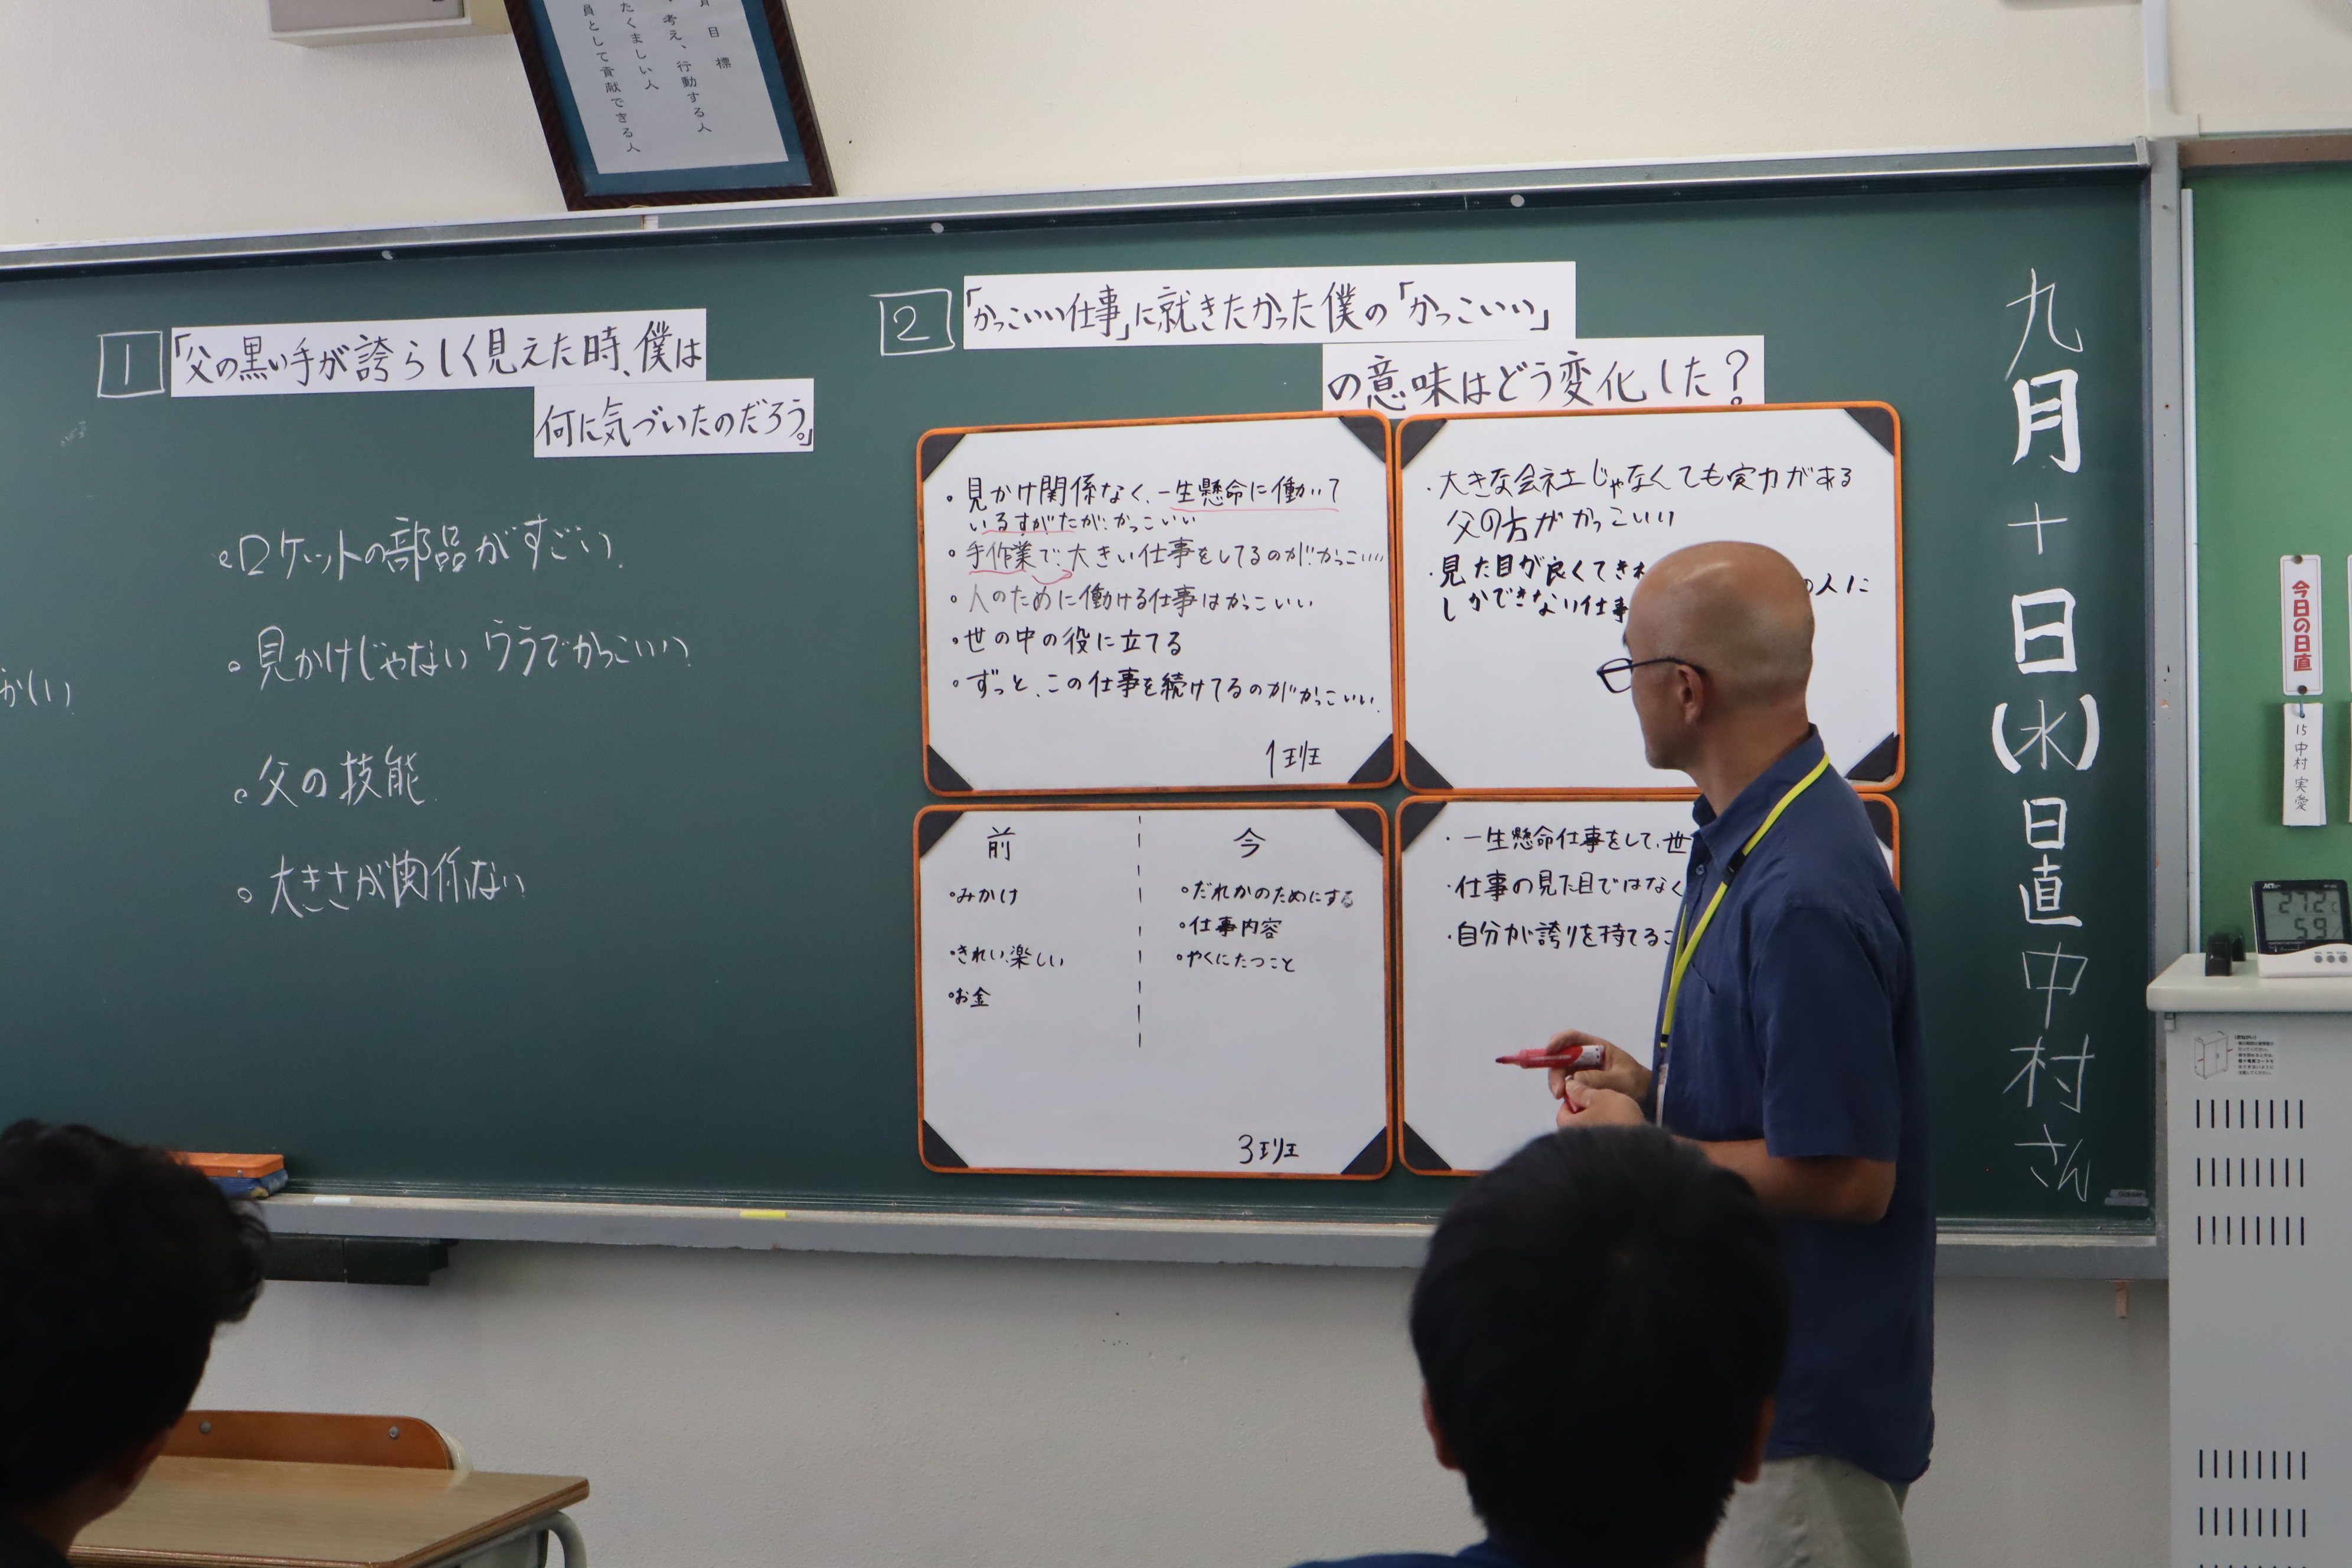 目標
考え、行動する人
たくましい人
員として貢献できる人
1
「父の黒い手が誇らしく見えた時、僕は
何に気づいたのだろう。」
。ロケットの部品がすごい
。見かけじゃない ウラでかっこいい
。父の技能
。大きさが関係ない
2
「かっこいい仕事」に就きたかった僕の「かっこいい」
の意味はどう変化した?
。見かけ関係なく、一生懸命に働いて
いるすがたが、かっこいい
。手作業で、大きい仕事をしてるのが、かっこいい
。人のために働ける仕事はかっこいい
。世の中の役に立てる
。ずっと、この仕事を続けてるのがかっこいい
1班
・大きな会社じゃなくても実力がある
父の方がかっこいい
・見た目が良くてきれ
の人に
しかできない仕事
前
今
。みかけ
。きれい、楽しい
。お金
。だれかのためにする
。仕事内容
。やくにたつこと
3班
・一生懸命仕事をして、世
・仕事の見た目ではなく
・自分が誇りを持てるこ
九月十日(水)日直 中村さん
今日の日直
15 中村 実愛
27.2
59